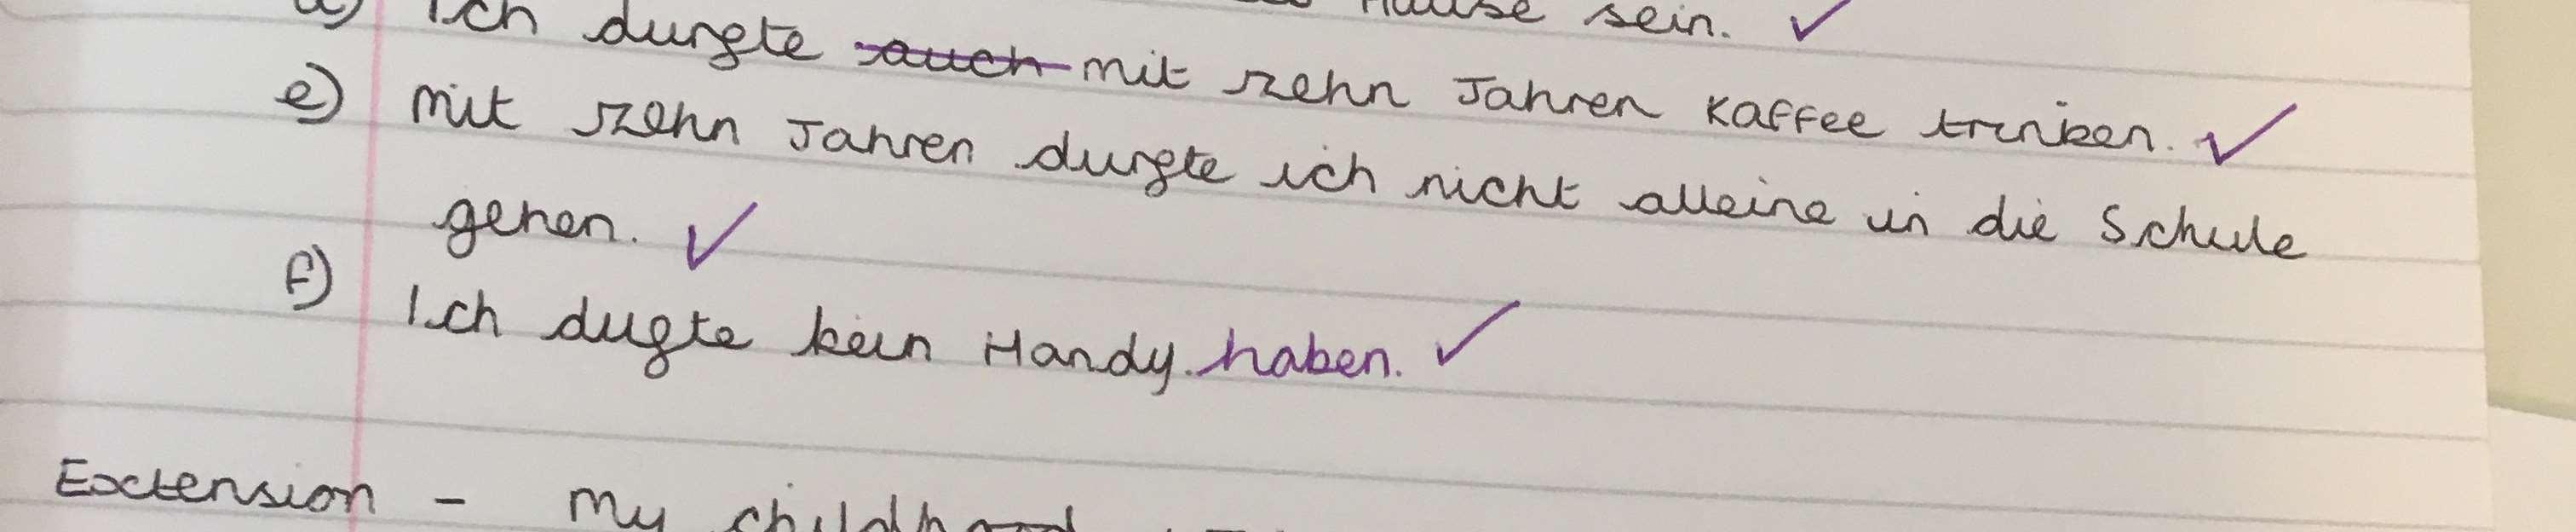 Hause sein. ✓
d) Ich durfte ~~auch~~ mit zehn Jahren Kaffee trinken. ✓
e) Mit zehn Jahren durfte ich nicht alleine in die Schule
gehen. ✓
f) Ich dufte kein Handy. haben. ✓
Extension - My childhood